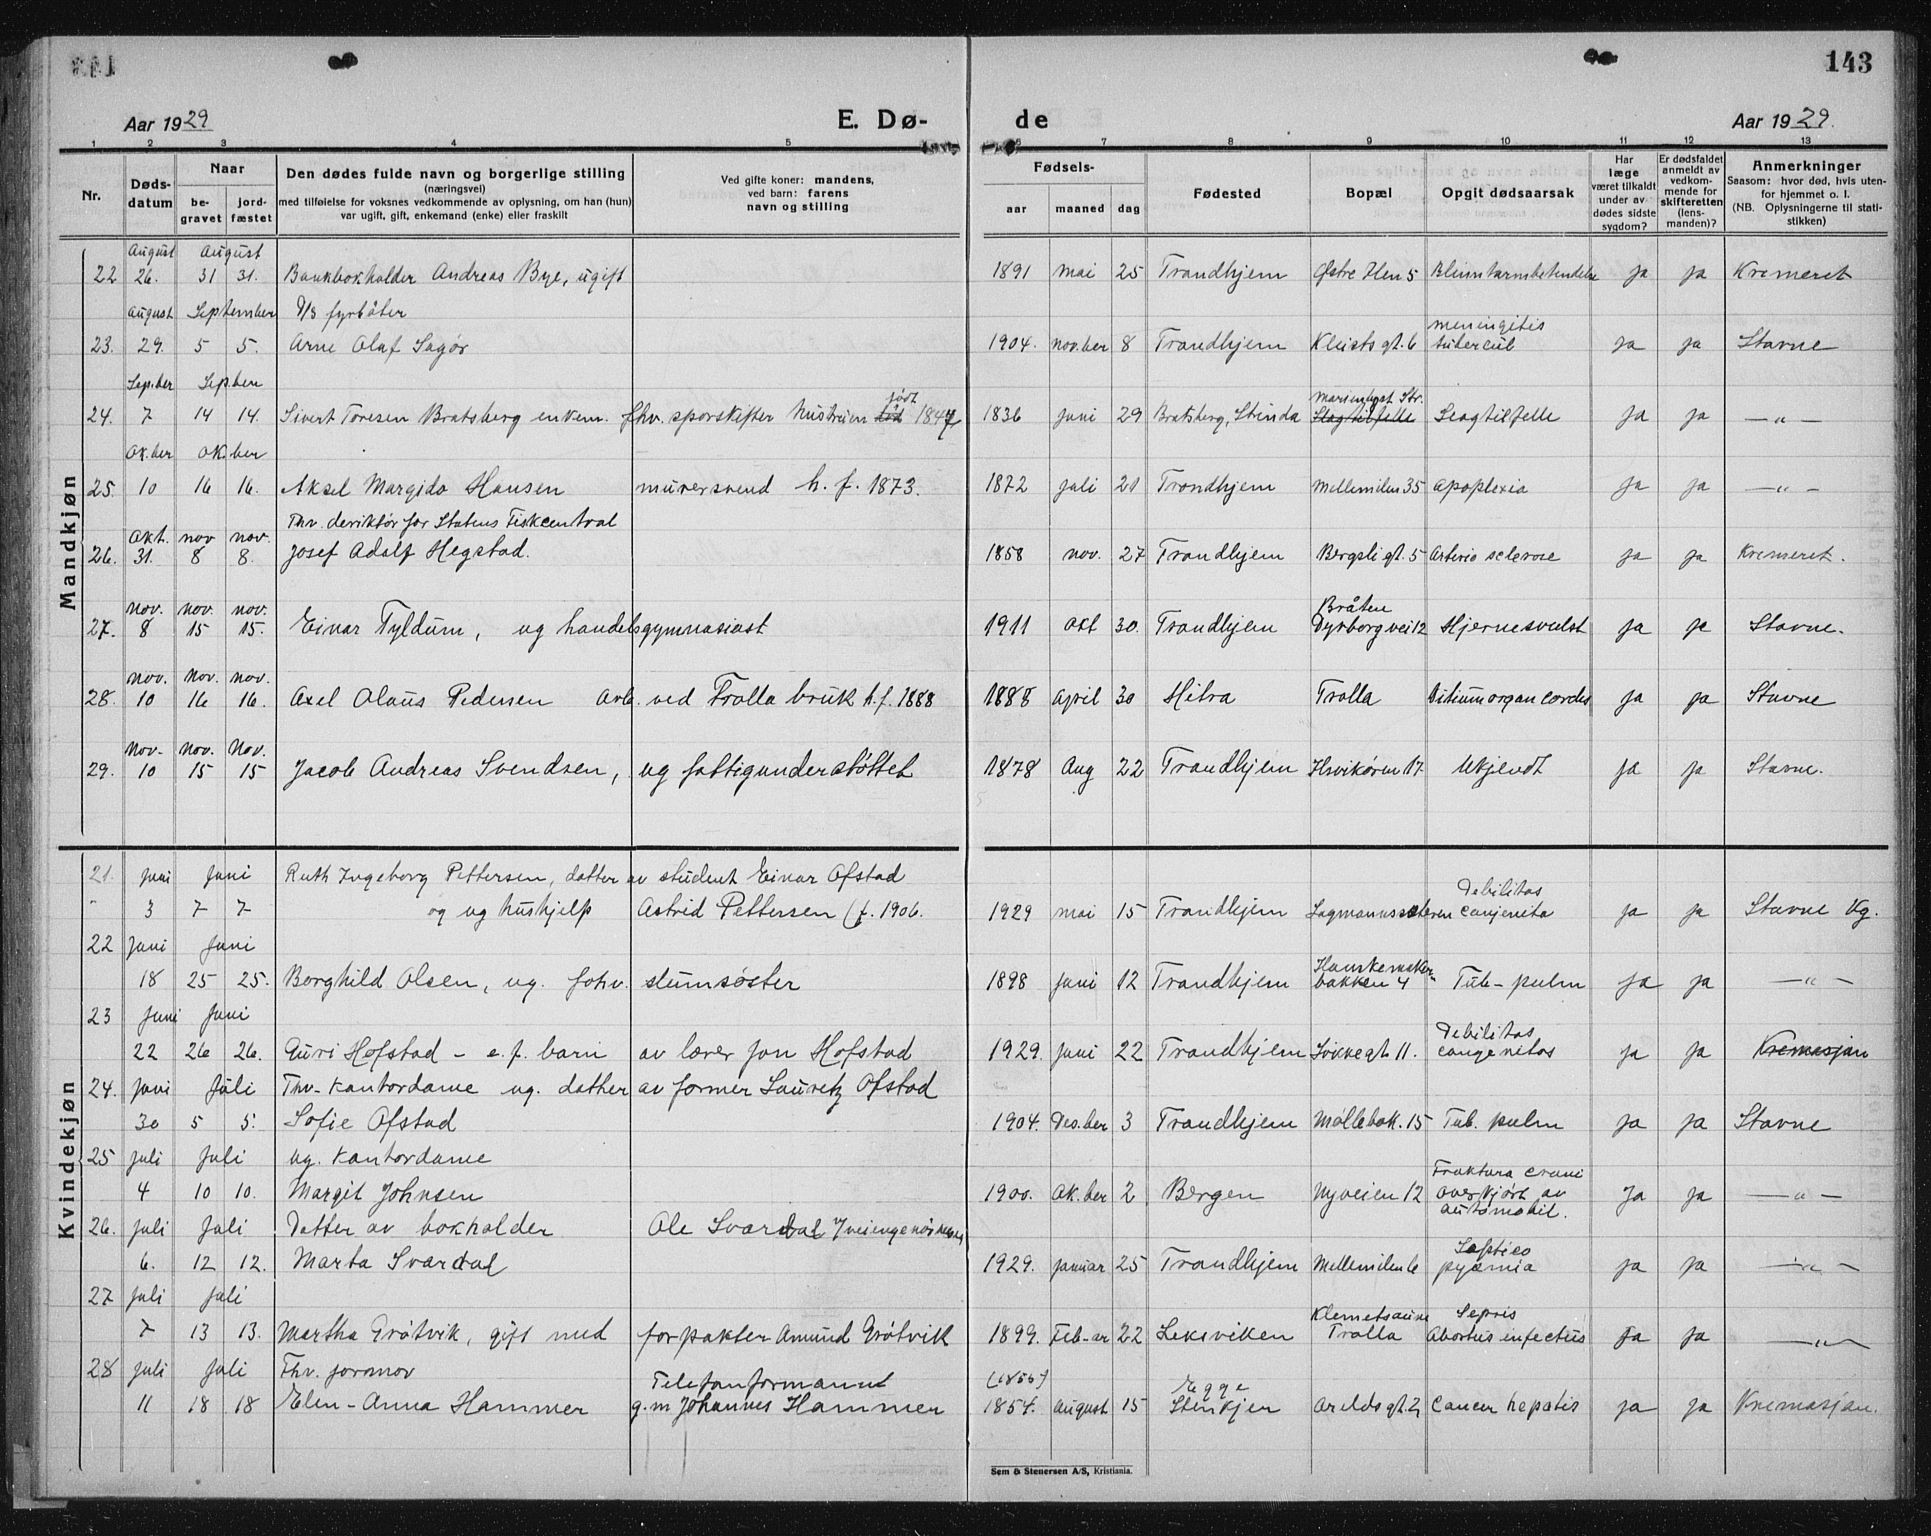 143
Aar 1929
E. Dø-
de
Aar 1929.
1 2 3 4 5 6 7 8 9 10 11 12 13
Nr.
Døds-
datum
Naar
be-
gravet
jord-
fæstet
Den dødes fulde navn og borgerlige stilling
(næringsvei)
med tilføielse for voksnes vedkommende av oplysning, om han (hun)
var ugift, gift, enkemand (enke) eller fraskilt
Ved gifte koner: mandens,
ved barn: farens
navn og stilling
Fødsels-
aar maaned dag
Fødested
Bopæl
Opgit dødsaarsak
Har
læge
været tilkaldt
under av
dødes sidste
sygdom?
Er dødsfaldet
anmeldt av
vedkom-
mende for
skifteretten
(lens-
manden)?
Anmerkninger
Saasom: hvor død, hvis uten-
for hjemmet o. l.
(NB. Oplysningerne til stati-
stikken)
Mandkjøn
August August
22 26. 31 31. Bankbokholder Andreas Bye, ugift 1891 mai 25 Trondhjem Østre Ilen 5 Blinntarmsbetendelse ja ja Kremeret
August September D/s fyrbøter
meningitis
23. 29. 5 5. Arne Olaf Sagør 1904. nov.ber 8 Trondhjem Kleists gt. 6 tubercul ja ja Stavne
Sep.ber Sep.ber
født
Marienlyst Str.
24. 7 14 14. Sivert Toresen Bratsberg enkem. fhv. sporskifter hustruen 1847 1836 juni 29 Bratsberg, Strinda Slagtilfelle Slagtilfelle ja ja —"—
Ok.ber ok.ber
25. 10 16 16. Aksel Margido Hansen murersvend h. f. 1873. 1872 juli 21 Trondhjem Mellemilen 35 apoplexia ja ja —"—
Fhv. deriktør for Statens Fiskcentral
Okt. nov nov.
26. 31. 8 8. Josef Adolf Hegstad. 1858 nov. 27 Trondhjem Bergsli gt. 5 Arterio sclerose ja ja Kremeret.
nov. nov. nov.
Bråten
27. 8 15 15. Einar Tyldum, ug handelsgymnasiast 1911 okt 30. Trondhjem Dyrborgvei 12 Hjernesvulst ja ja Stavne.
nov. nov. nov.
28. 10 16 16. Axel Olaus Pedersen arb. ved Trolla bruk h.f. 1888 1888 april 30 Hitra Trolla Vitium organ cordis ja ja Stavne
Nov. Nov. Nov.
29. 10 15 15 Jacob Andreas Svendsen, ug fattigunderstøttet 1878 Aug 22 Trondhjem Ilsvikøren 17. Ukjendt ja ja Stavne.
Kvindekjøn
21. juni juni Ruth Ingeborg Pettersen, datter av student Einar Ofstad
Debilitas
3 7 7 og ug hushjelp Astrid Pettersen (f. 1906. 1929 mai 15 Trondhjem congenita ja ja Stavne Kg.
22 juni juni
Hanskemaker-
18 25 25. Borghild Olsen, ug. fohv. slumsøster 1898 juni 12 Trondhjem bakken 4 Tub-pulm ja ja —"—
23 juni juni
Debilitas
22 26 26. Guri Hofstad - e. f. barn av lærer Jon Hofstad 1929. juni 22 Trondhjem Løkkegt 11. congenitas ja ja Kremasjon
24. juni juli Fhv. kontordame ug. datter av former Lauretz Ofstad
30 5 5. Sofie Ofstad 1904. Des.ber 3 Trondhjem Møllebak. 15 Tub. pulm ja ja Stavne
25 juli juli ug. kontordame
Fraktura crani
4 10 10. Margit Johnsen 1900. Ok.ber 2 Bergen Nyveien 12 overkjørt av Ja ja —"—
automobil.
26. juli juli Datter av bokholder Ole Svardal
6. 12 12. Marta Svardal 1929. januar 25 Trondhjem Mellemilen 6 pyæmia ja ja —"—
27 juli juli
Sepsis
7 13 13. Martha Grøtvik, gift med forpakter Amund Grøtvik 1899. Feb-ar 22 Leksviken Trolla Abortus infectius Ja ja —"—
28 juli juli Fhv. jormor Telefonformannt
(1856)
Egge
11 18 18 Elen-Anna Hammer g.m Johannes Hammer 1854. august 15 Stenkjer Arildsgt. 2 Cancer hepatis ja ja Kremasjon.
Sem & Stenersen A/S, Kristiania.